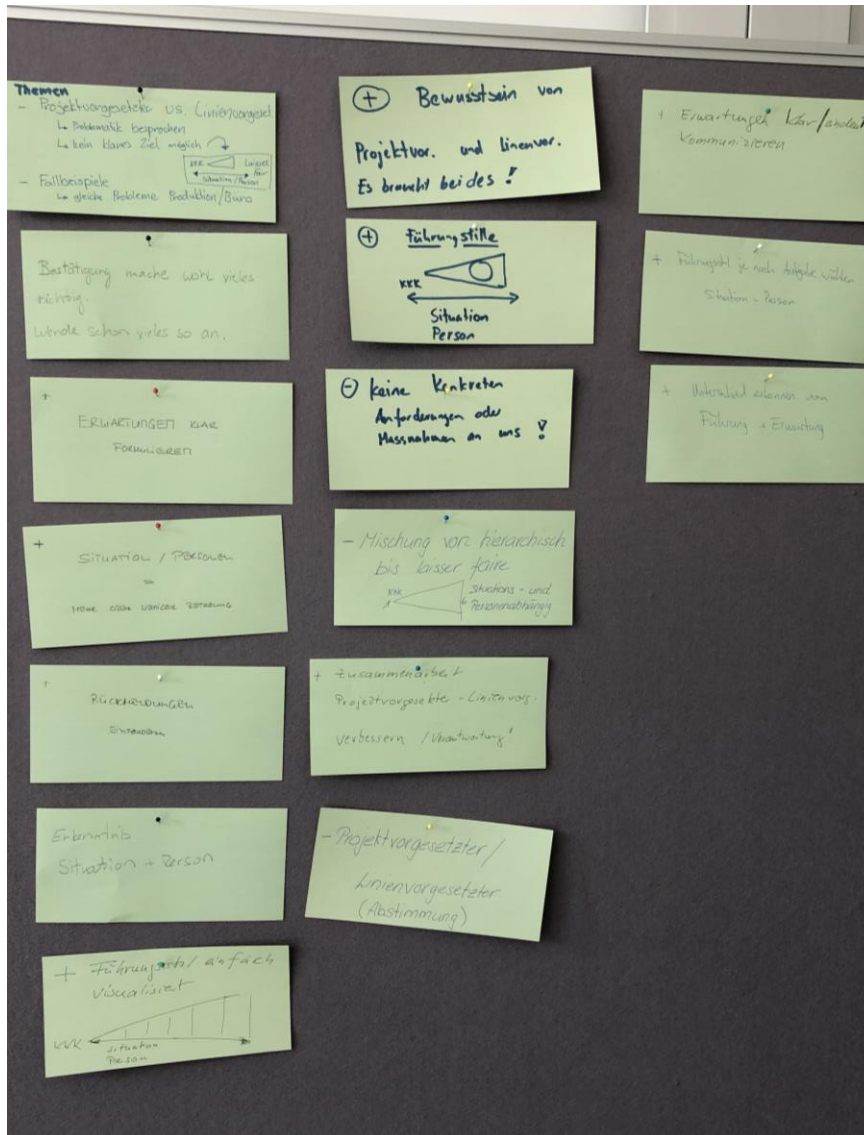 Themen
- Projektvorgesetzter vs. Linienvorgeset.
↳ Problematik besprochen
↳ kein klares Ziel möglich
KKK Laisser fair
Situation/Person
- Fallbeispiele
↳ gleiche Probleme Produktion/Büro
Bestätigung mache wohl vieles
richtig.
Wende schon vieles so an.
+
ERWARTUNGEN KLAR
FORMULIEREN
+
SITUATION / PERSONEN
=
MEHR ODER WENIGER
+
RÜCKMELDUNGEN
Situation + Person
+ Führungsstil einfach
visualisiert
KKK
Situation
Person
+ Bewusstsein von
Projektvor. und linenvor.
Es braucht beides!
+ Führungstille
KKK
Situation
Person
- keine Konkreten
Anforderungen oder
Massnahmen an uns!
- Mischung von hierarchisch
bis laisser faire
KKK
Situations- und
Personenabhängig
+ Zusammenarbeit
Projektvorgesetzter - Linienvorg.
verbessern / Verantwortung!
- Projektvorgesetzter /
Linienvorgesetzter
(Abstimmung)
+ Erwartungen klar/
kommunizieren
+ Führungsstil je nach Aufgabe wählen
Situation - Person
+ Unterschied erkennen von
Führung + Erwartung